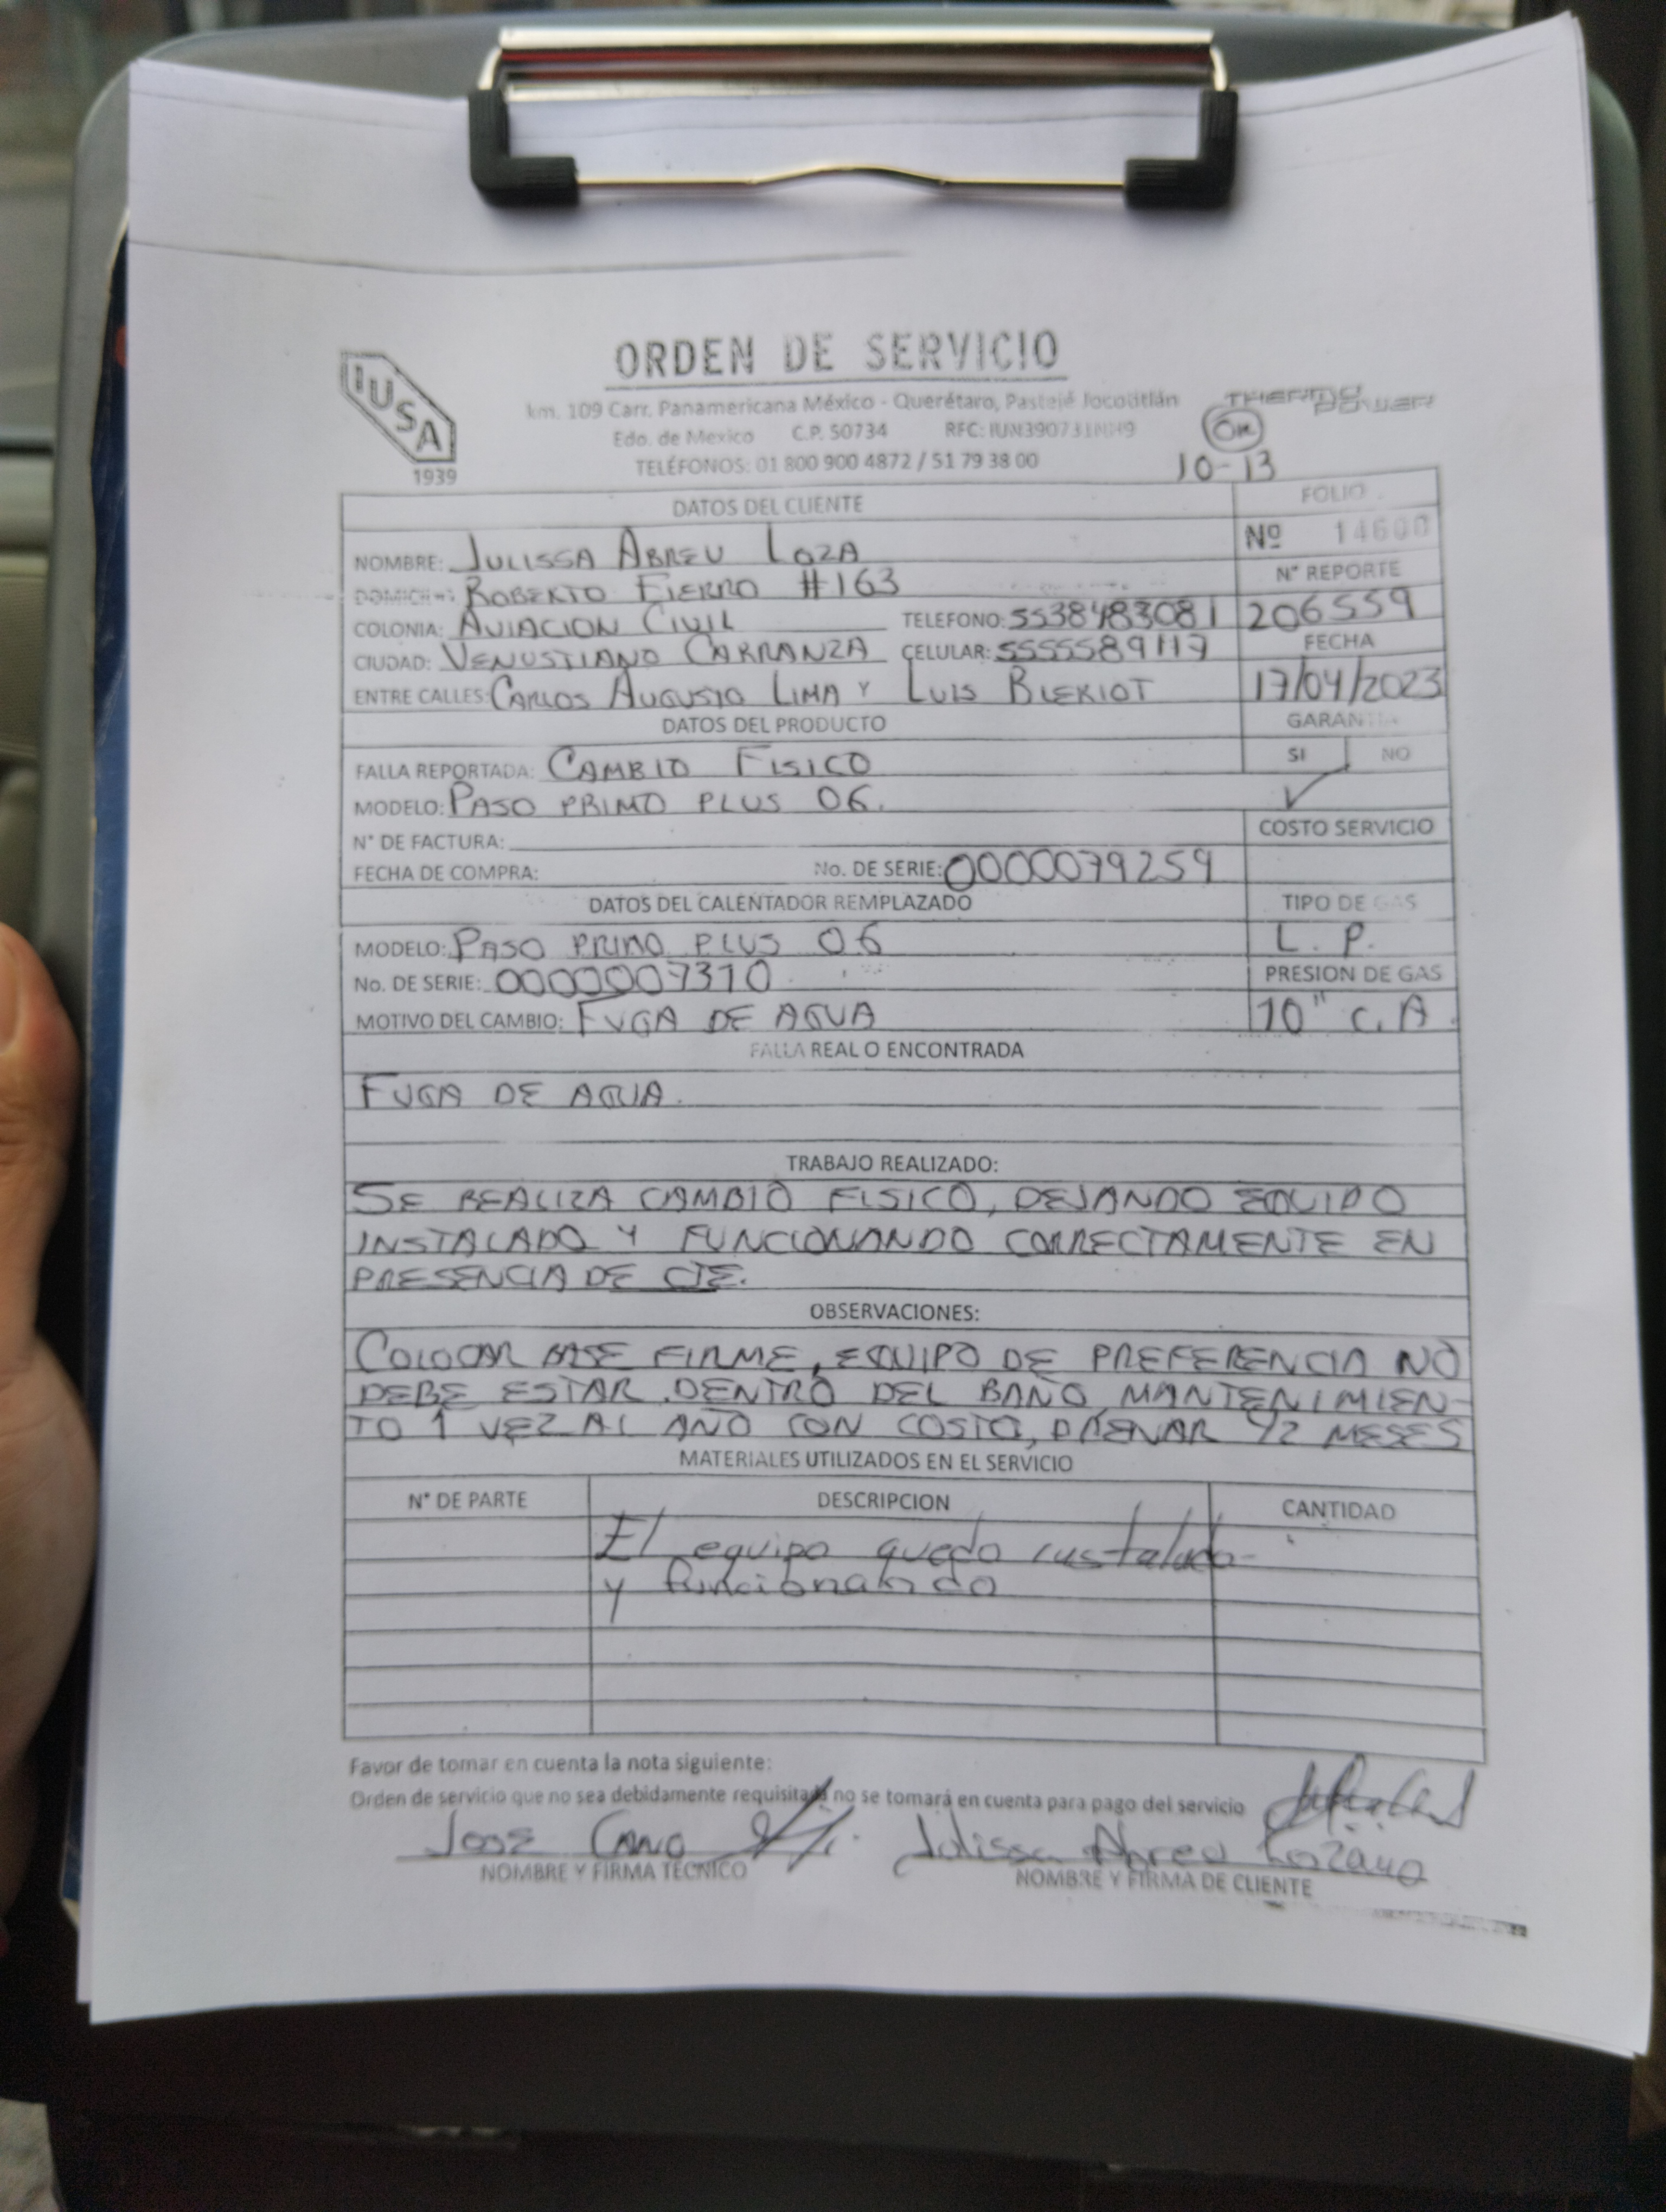 ORDEN DE SERVICIO
IUSA
1939
km. 109 Carr. Panamericana México - Querétaro, Pastejé Jocotitlán
THERMO POWER
Edo. de Mexico C.P. 50734 RFC:
TELÉFONOS: 01 800 900 4872 / 51 79 38 00
10-13
DATOS DEL CLIENTE
FOLIO
Nº 14600
NOMBRE: JULISSA ABREU LOZA
Nº REPORTE
ROBERTO FIERRO #163
206559
COLONIA: AVIACION CIVIL TELEFONO: 5538483081
FECHA
CIUDAD: VENUSTIANO CARRANZA CELULAR: 5555589117
ENTRE CALLES: CARLOS AUGUSTO LIMA Y LUIS BLERIOT
17/04/2023
DATOS DEL PRODUCTO
GARANTIA
FALLA REPORTADA: CAMBIO FISICO
SI NO
MODELO: PASO PRIMO PLUS 06.
✓
N° DE FACTURA:
COSTO SERVICIO
FECHA DE COMPRA: No. DE SERIE: 0000079259
DATOS DEL CALENTADOR REMPLAZADO
TIPO DE GAS
MODELO: PASO PRIMO PLUS 06
L. P.
No. DE SERIE: 0000007310
PRESION DE GAS
MOTIVO DEL CAMBIO: FUGA DE AGUA
10" C.A.
FALLA REAL O ENCONTRADA
FUGA DE AGUA.
TRABAJO REALIZADO:
SE REALIZA CAMBIO FISICO, DEJANDO EQUIPO
INSTALADO Y FUNCIONANDO CORRECTAMENTE EN
PRESENCIA DE CTE.
OBSERVACIONES:
COLOCAR BASE FIRME, EQUIPO DE PREFERENCIA NO
DEBE ESTAR DENTRO DEL BAÑO, MANTENIMIEN-
TO 1 VEZ AL AÑO CON COSTO, DRENAR MESES
MATERIALES UTILIZADOS EN EL SERVICIO
N° DE PARTE DESCRIPCION CANTIDAD
El equipo quedo instalado
y funcionando
Favor de tomar en cuenta la nota siguiente:
Orden de servicio que no sea debidamente requisitada no se tomará en cuenta para pago del servicio
JOSE CANO Julissa Abreu Lozano
NOMBRE Y FIRMA TECNICO NOMBRE Y FIRMA DE CLIENTE